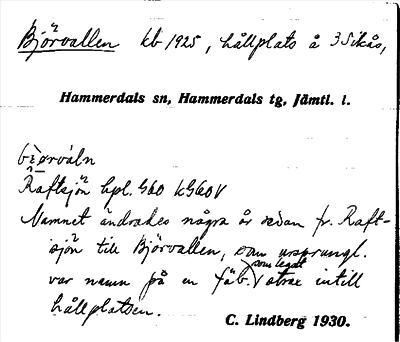 Björvallen kb 1925, hållplats å 3 Sikås,
Hammerdals sn, Hammerdals tg, Jämtl. l.
Raftsjön hpl. G60 kSGöoV
Namnet ändrades några år sedan fr. Raft-
sjön till Björvallen, som ursprungl.
var namn på en fäb. som legat strax intill
hållplatsen.
C. Lindberg 1930.